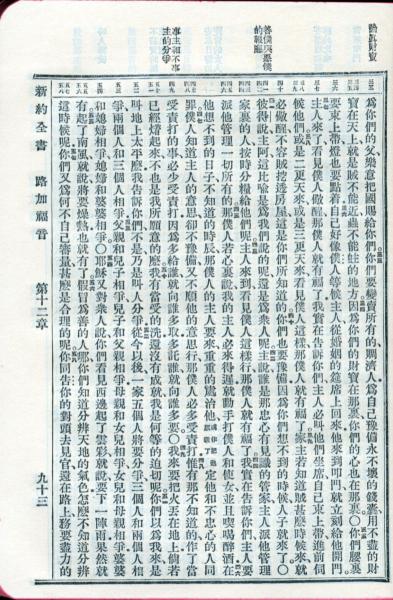 論真財寶
善僕與惡僕的報應
事主和不事主的分爭
為你們的父樂意把國賜給你們你們要變賣所有的賙濟人為自己豫備永不壞的錢囊用不盡的財
寶在天上就是賊不能近蟲不能蛀的地方因為你們的財寶在那裏你們的心也在那裏○你們腰裏
要束上帶燈也要點着自己好像僕人等候主人從婚姻的筵席上回來他來到叩門就立刻給他開門
主人來了看見僕人儆醒那僕人就有福了我實在告訴你們主人必叫他們坐席自己束上帶進前伺
候他們或是二更天來或是三更天來看見僕人這樣那僕人就有福了家主若知道賊甚麼時候來就
必儆醒不容賊挖透房屋這是你們所知道的你們也要豫備因為你們想不到的時候人子就來了○
彼得說主阿這比喻是為我們說的呢還是為衆人呢主說誰是那忠心有見識的管家主人派他管理
家裏的人按時分糧給他們呢主人來到看見僕人這樣行那僕人就有福了我實在告訴你們主人要
派他管理一切所有的那僕人若心裏說我的主人必來得遲就動手打僕人和使女並且喫喝醉酒在
他想不到的日子不知道的時辰那僕人的主人要來重重的處治他或作把他腰斬了定他和不忠心的人同
罪僕人知道主人的意思卻不豫備又不順他的意思行那僕人必多受責打惟有那不知道的作了當
受責打的事必少受責打因為多給誰就向誰多取多託誰就向誰多要○我來要把火丟在地上倘若
已經起來不也是我所願意的麼我有當受的洗還沒有成就我是何等的迫切呢你們以為我來是
叫地上太平麼我告訴你們不是乃是叫人分爭從今以後一家五個人將要分爭三個人和兩個人相
爭兩個人和三個人相爭父親和兒子相爭兒子和父親相爭母親和女兒相爭女兒和母親相爭婆婆
和媳婦相爭媳婦和婆婆相爭○耶穌又對衆人說你們看見西邊起了雲彩就說要下一陣雨果然就
有起了南風就說將要燥熱也就有了假冒為善的人哪你們知道分辨天地的氣色怎麼不知道分辨
這時候呢你們又為何不自己審量甚麼是合理的呢你同告你的對頭去見官還在路上務要盡力的
新約全書 路加福音 第十二章 九十三